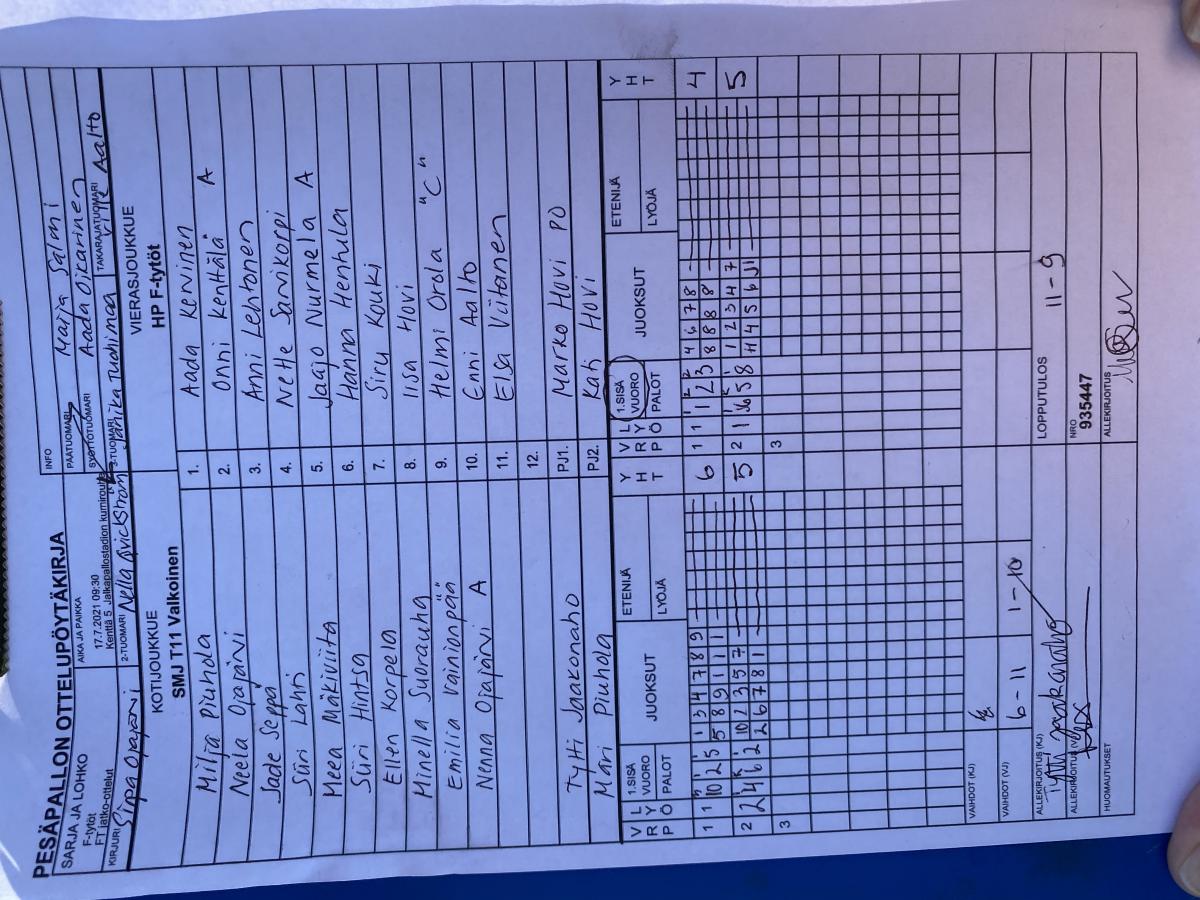 PESÄPALLON OTTELUPÖYTÄKIRJA
SARJA JA LOHKO
F-tytöt
FT jatko-ottelut
AIKA JA PAIKKA
17.7.2021 09:30
Kenttä 5 Jalkapallostadion kumirouhe
INFO
PÄÄTUOMARI Marja Salmi
SYÖTTÖTUOMARI Aada Oikarinen
KIRJURI Sirpa Opajärvi
2-TUOMARI Nella Qvickström
3-TUOMARI Janika Tuohimaa
TAKARAJATUOMARI Ville Aalto
KOTIJOUKKUE
SMJ T11 Valkoinen
VIERASJOUKKUE
HP F-tytöt
Milja Piuhola 1. Aada Kervinen
Neela Opajärvi 2. Onni Kenttälä A
Jade Seppä 3. Anni Lehtonen
Siiri Lahri 4. Nette Sarvikorpi
Meea Mäkiviita 5. Jaajo Nurmela A
Siiri Hintsa 6. Hanna Henhula
Ellen Korpela 7. Siru Kouki
Minella Suorauha 8. Iisa Hovi
Emilia Vainionpää 9. Helmi Orola "C"
Nenna Ojajärvi A 10. Enni Aalto
11. Elsa Viitanen
12.
Tytti Jaakonaho PJ1. Marko Hovi PO
Mari Piuhola PJ2. Kati Hovi
V L
R Y
P Ö
1.SISÄ
VUORO
PALOT
JUOKSUT
ETENIJÄ
LYÖJÄ
Y
H
T
V L
R Y
P Ö
1.SISÄ
VUORO
PALOT
JUOKSUT
ETENIJÄ
LYÖJÄ
Y
H
T
1 1 10 2 5 1 3 4 7 8 9 6
5 8 9 1 1 1
1 1 1 2 3 4 6 7 8 4
8 8 8 8
2 2 4 6 2 10 2 3 5 7 5
2 6 7 8 1
2 1 5 8 1 2 3 4 7 5
3
3
VAIHDOT (KJ)
VAIHDOT (VJ) 6-11 1-10
ALLEKIRJOITUS (KJ) Tytti Jaakonaho
LOPPUTULOS 11-9
ALLEKIRJOITUS (VJ)
NRO
935447
HUOMAUTUKSET
ALLEKIRJOITUS